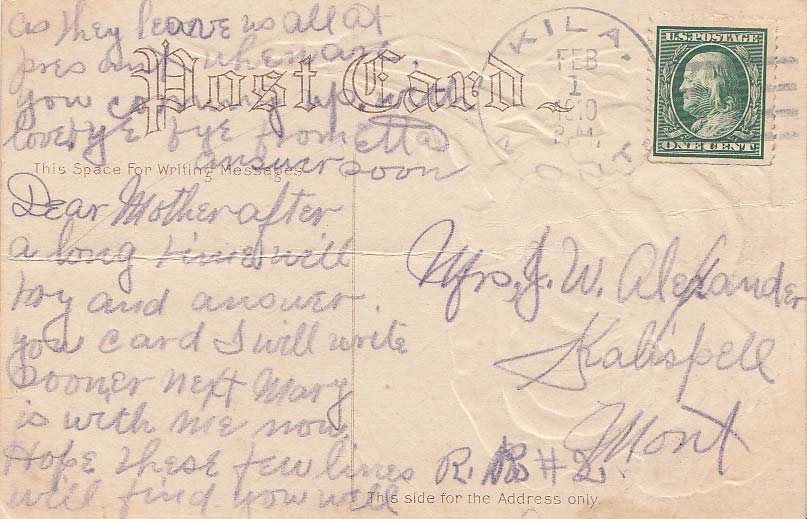 as they leave us all at
present when are
you coming up with
love bye bye from Etta
answer soon
Post Card
KILA,
FEB
1
1910
P.M.
MONT.
U.S. POSTAGE
ONE CENT
This Space For Writing Messages
Dear Mother after
a long time will
try and answer
you card I will write
sooner next Mary
is with me now
Hope these few lines
will find you well
Mrs. J. W. Alexander
Kalispell
Mont
R. #2.
This side for the Address only.